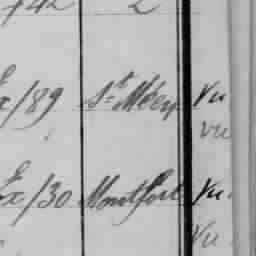 742 2
Ex/89 St Méen Vu
vu
Ex/30 Montfort Vu
Vu